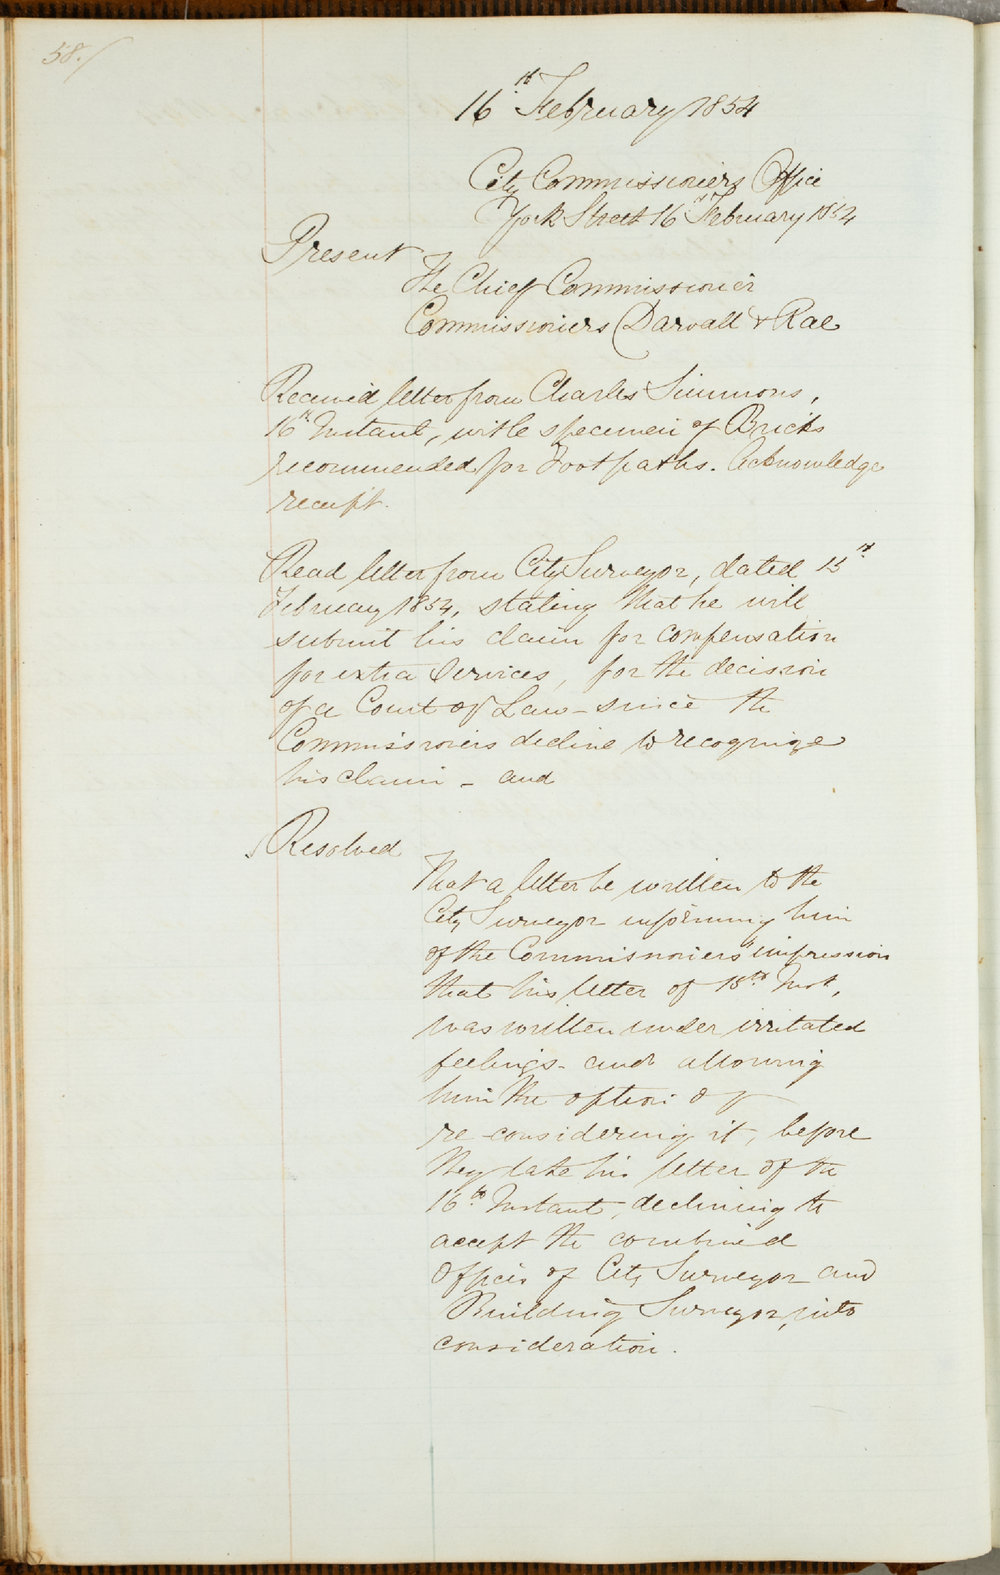 58.
16th February 1854
City Commissioners Office
York Street 16th February 1854
Present
The Chief Commissioner
Commissioners Darvall & Rae
Received letter from Charles Simmons,
16th Instant, with specimen of Bricks
recommended for Footpaths. Acknowledge
receipt.
Read letter from City Surveyor, dated 15th
February 1854, stating that he will
submit his claim for compensation
for extra services, for the decision
of a Court of Law - since the
Commissioners decline to recognize
his claim - and
Resolved
That a letter be written to the
City Surveyor informing him
of the Commissioners' impression
that his letter of 15th Inst,
was written under irritated
feelings - and allowing
him the option of
re-considering it, before
they take his letter of the
16th Instant, declining to
accept the combined
Offices of City Surveyor and
Building Surveyor, into
consideration.